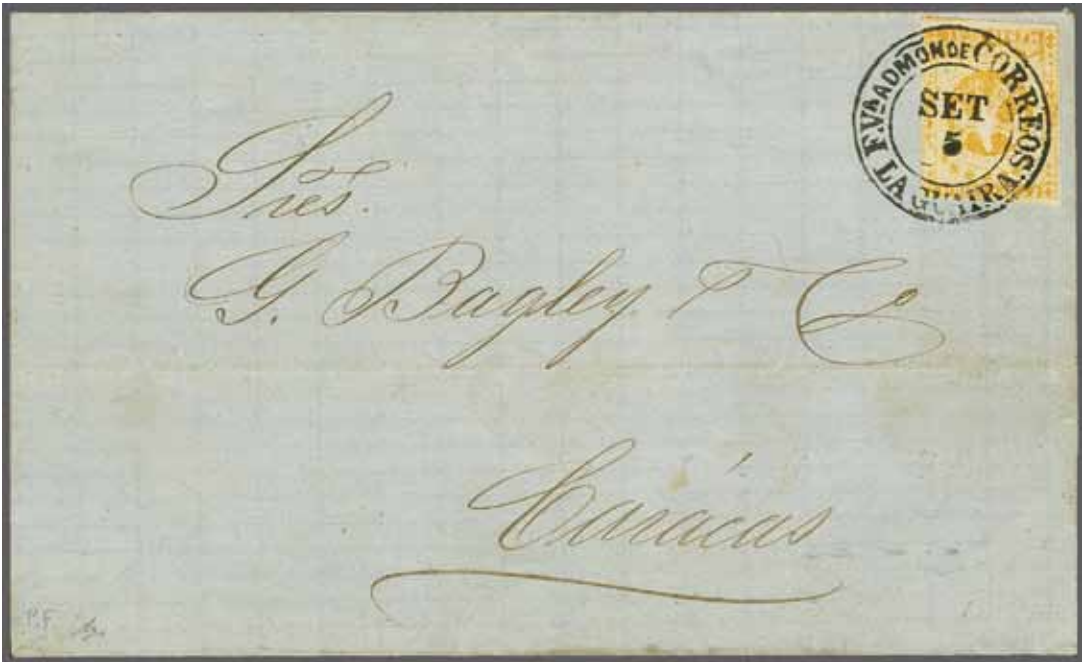 F. Vª ADMON DE CORREOS.
LA GUAIRA.
SET
5
Srēs.
G. Bagley & Co
Carácas
P.F